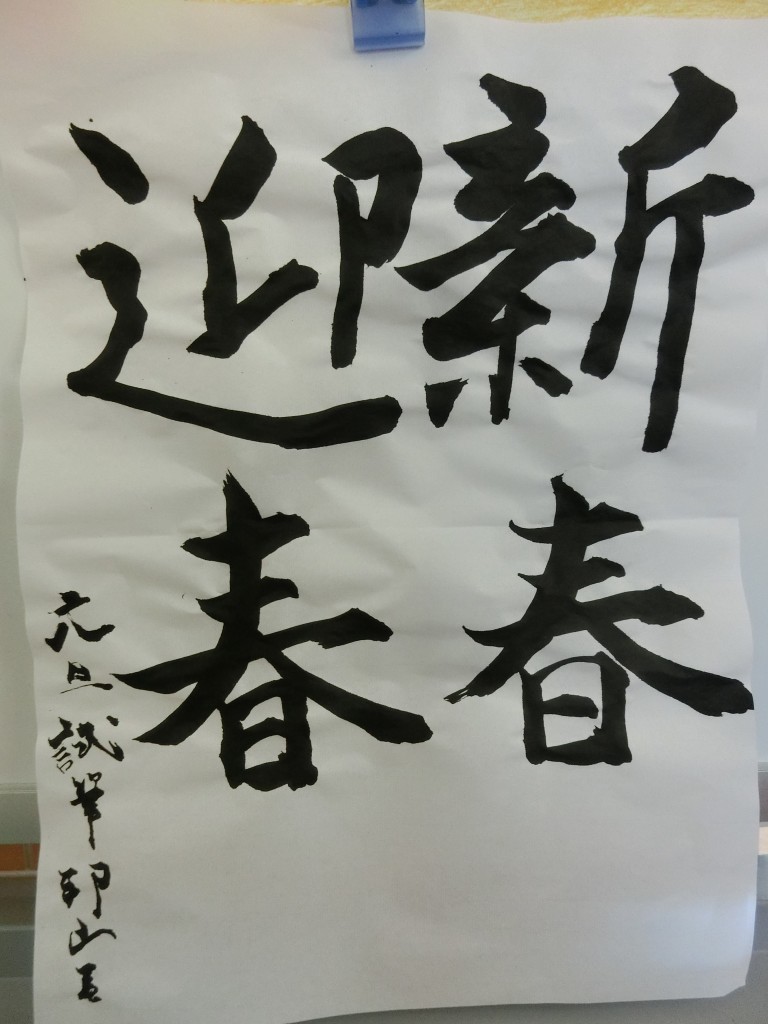 新春
迎春
元旦試筆 山